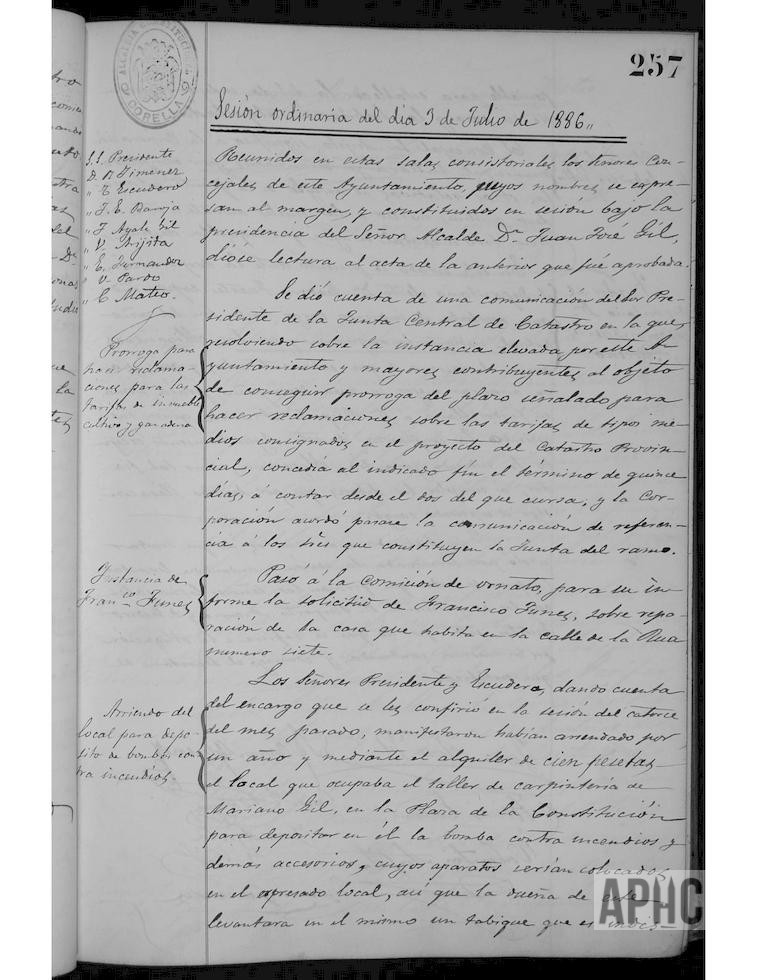 257
ALCALDIA CONSTITUCIONAL
CORELLA
Sesión ordinaria del dia 3 de Julio de 1886,,
S.S. Presidente
D. Jimenez
" Escudero
" Ayala Gil
" V. Arijita
" E. Fernandez
" V. Pardo
" C. Mateo.
Reunidos en estas salas consistoriales los Señores Con-
cejales de este Ayuntamiento, cuyos nombres se expre-
san al margen, y constituidos en sesión bajo la
presidencia del Señor Alcalde Dn Juan José Gil,
dióse lectura al acta de la anterior que fué aprobada.
Prorroga para
hacer reclama-
ciones para las
tarifas de inmuebles
cultivo y ganaderia
Se dió cuenta de una comunicación del Sor Pre-
sidente de la Junta Central de Catastro en la que,
resolviendo sobre la instancia elevada por este A-
yuntamiento y mayores contribuyentes al objeto
de conseguir prorroga del plazo señalado para
hacer reclamaciones sobre las tarifas de tipos me-
dios consignados en el proyecto del Catastro Provin-
cial, concedia al indicado fin el término de quince
dias, á contar desde el dos del que cursa; y la Cor-
poración acordó pasase la comunicación de referen-
cia á los Sres que constituyen la Junta del ramo.
Instancia de
Franco Funes
Pasó á la Comisión de ornato, para su in-
forme la solicitud de Francisco Funes, sobre repa-
ración de la casa que habita en la calle de la Rua
numero siete.
Arriendo del
local para depo-
sito de bombas con-
tra incendios
Los Señores Presidente y Escudero, dando cuenta
del encargo que se les confirió en la sesión del catorce
del mes pasado, manifestaron habian arrendado por
un año y mediante el alquiler de cien pesetas
el local que ocupaba el taller de carpinteria de
Mariano Gil, en la Plaza de la Constitución
para depositar en él la bomba contra incendios y
demás accesorios, cuyos aparatos serian colocados
en el expresado local, asi que la dueña de este
levantara en el mismo un tabique que es indis-
APHC